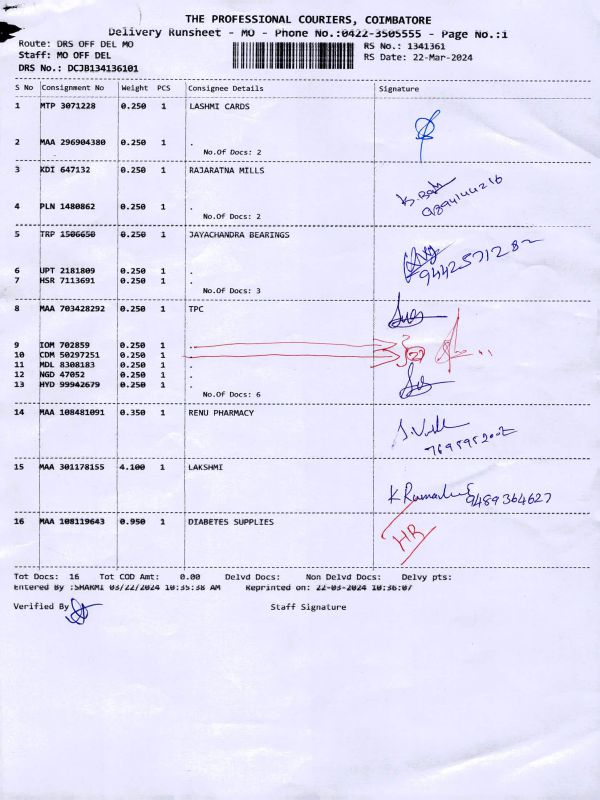 THE PROFESSIONAL COURIERS, COIMBATORE
Delivery Runsheet - MO - Phone No.:0422-3505555 - Page No.:1
Route: DRS OFF DEL MO
RS No.: 1341361
Staff: MO OFF DEL
RS Date: 22-Mar-2024
DRS No.: DCJB134136101
S No Consignment No Weight PCS Consignee Details Signature
1 MTP 3071228 0.250 1 LASHMI CARDS
2 MAA 296904380 0.250 1 .
No.Of Docs: 2
3 KDI 647132 0.250 1 RAJARATNA MILLS
9894144216
4 PLN 1480862 0.250 1 .
No.Of Docs: 2
5 TRP 1506650 0.250 1 JAYACHANDRA BEARINGS
9442571282
6 UPT 2181809 0.250 1 .
7 HSR 7113691 0.250 1 .
No.Of Docs: 3
8 MAA 703428292 0.250 1 TPC
9 IOM 702859 0.250 1 .
10 CDM 50297251 0.250 1 .
11 MDL 8308183 0.250 1 .
12 NGD 47052 0.250 1 .
13 HYD 99942679 0.250 1 .
No.Of Docs: 6
14 MAA 108481091 0.350 1 RENU PHARMACY
7695952002
15 MAA 301178155 4.100 1 LAKSHMI
9489364627
16 MAA 108119643 0.950 1 DIABETES SUPPLIES
HR
Tot Docs: 16 Tot COD Amt: 0.00 Delvd Docs: Non Delvd Docs: Delvy pts:
Entered By :SHARMI 03/22/2024 10:35:38 AM Reprinted on: 22-03-2024 10:36:07
Verified By
Staff Signature